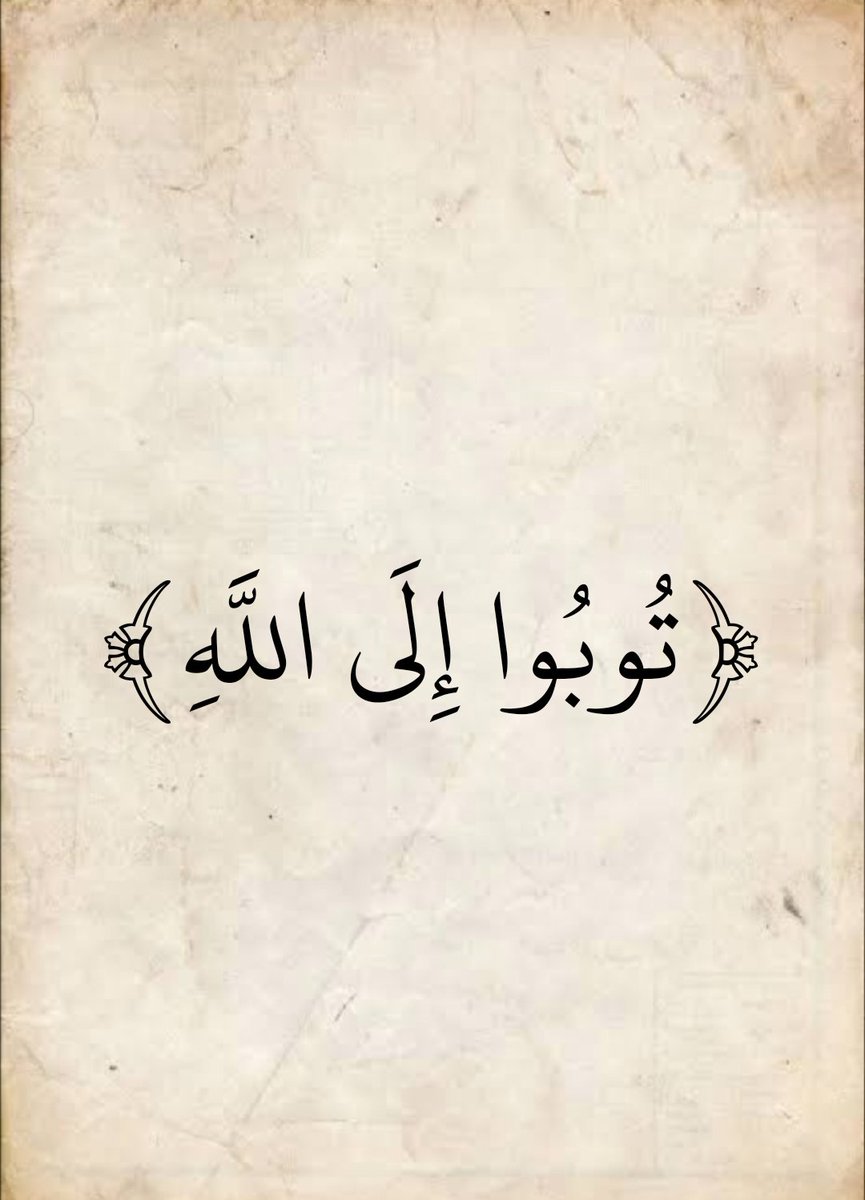 ﴿تُوبُوا إِلَى اللَّهِ﴾